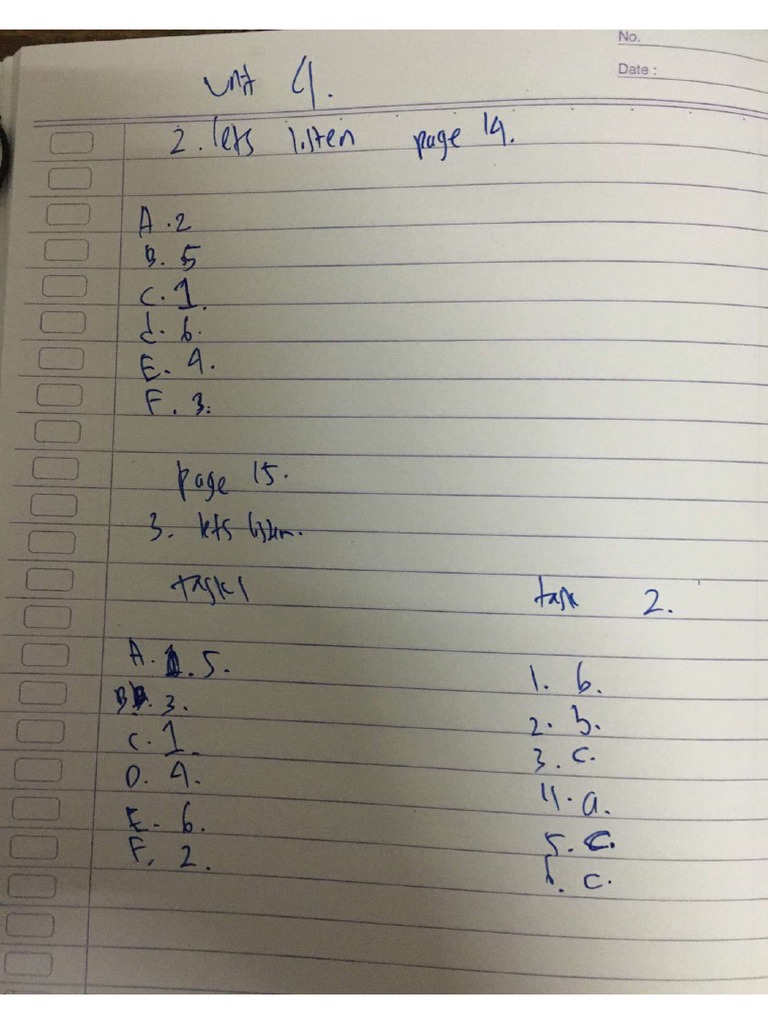 No.
Date :
Unit 4.
2. lets listen page 14.
A. 2
B. 5
C. 1.
d. 6.
E. 4.
F. 3.
page 15.
3. lets listen.
task 1
A. 5.
B. 3.
C. 1.
D. 4.
E. 6.
F. 2.
task 2.
1. b.
2. b.
3. c.
4. a.
5. c.
6. c.